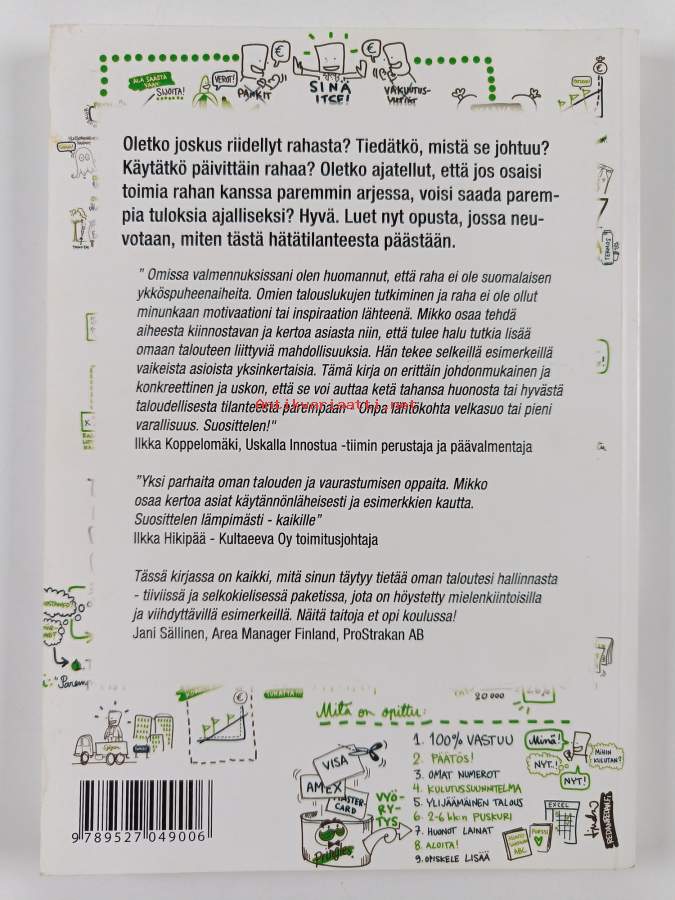 ÄLÄ SÄÄSTÄ VAAN
SIJOITA!
VEROT!
PANKIT
SINÄ
ITSE!
VAKUUTUS-
YHTIÖT
Oletko joskus riidellyt rahasta? Tiedätkö, mistä se johtuu?
Käytätkö päivittäin rahaa? Oletko ajatellut, että jos osaisi
toimia rahan kanssa paremmin arjessa, voisi saada parem-
pia tuloksia ajalliseksi? Hyvä. Luet nyt opusta, jossa neu-
votaan, miten tästä hätätilanteesta päästään.
" Omissa valmennuksissani olen huomannut, että raha ei ole suomalaisen
ykköspuheenaiheita. Omien talouslukujen tutkiminen ja raha ei ole ollut
minunkaan motivaationi tai inspiraation lähteenä. Mikko osaa tehdä
aiheesta kiinnostavan ja kertoa asiasta niin, että tulee halu tutkia lisää
omaan talouteen liittyviä mahdollisuuksia. Hän tekee selkeillä esimerkeillä
vaikeista asioista yksinkertaisia. Tämä kirja on erittäin johdonmukainen ja
konkreettinen ja uskon, että se voi auttaa ketä tahansa huonosta tai hyvästä
taloudellisesta tilanteesta parempaan - Onpa lähtökohta velkasuo tai pieni
Antikvariaatti.net
varallisuus. Suosittelen!"
Ilkka Koppelomäki, Uskalla Innostua -tiimin perustaja ja päävalmentaja
"Yksi parhaita oman talouden ja vaurastumisen oppaita. Mikko
osaa kertoa asiat käytännönläheisesti ja esimerkkien kautta.
Suosittelen lämpimästi - kaikille"
Ilkka Hikipää - Kultaeeva Oy toimitusjohtaja
Tässä kirjassa on kaikki, mitä sinun täytyy tietää oman taloutesi hallinnasta
- tiiviissä ja selkokielisessä paketissa, jota on höystetty mielenkiintoisilla
ja viihdyttävillä esimerkeillä. Näitä taitoja et opi koulussa!
Jani Sällinen, Area Manager Finland, ProStrakan AB
20 000
Mitä on opittu:
1. 100% VASTUU
2. PÄÄTÖS!
3. OMAT NUMEROT
4. KULUTUSSUUNNITELMA
5. YLIJÄÄMÄINEN TALOUS
6. 2-6 kk:n PUSKURI
7. HUONOT LAINAT
8. ALOITA!
9. OPISKELE LISÄÄ
Minä!
NYT..!
NYT!
MIHIN
KULUTAN?
VISA
AMEX
MASTER-
CARD
VYÖ-
RY-
TYS
Pringles
EXCEL
ABC
9 789527 049006